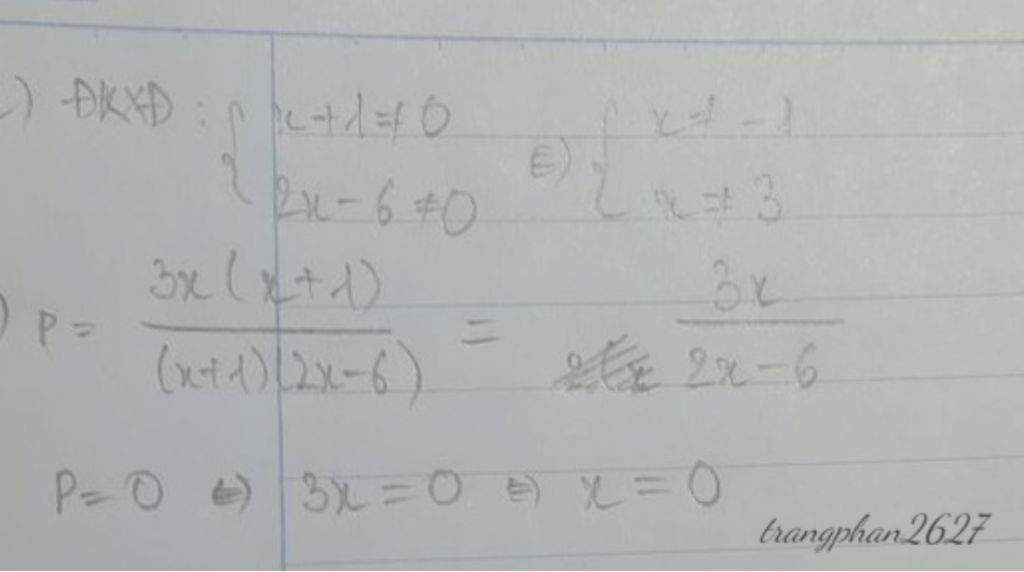 ) ĐKXĐ: { x+1≠0 <=> { x≠-1
2x-6≠0 x≠3
) P = 3x(x+1) / (x+1)(2x-6) = 3x / 2x-6
P=0 <=> 3x=0 <=> x=0
trangphan2627